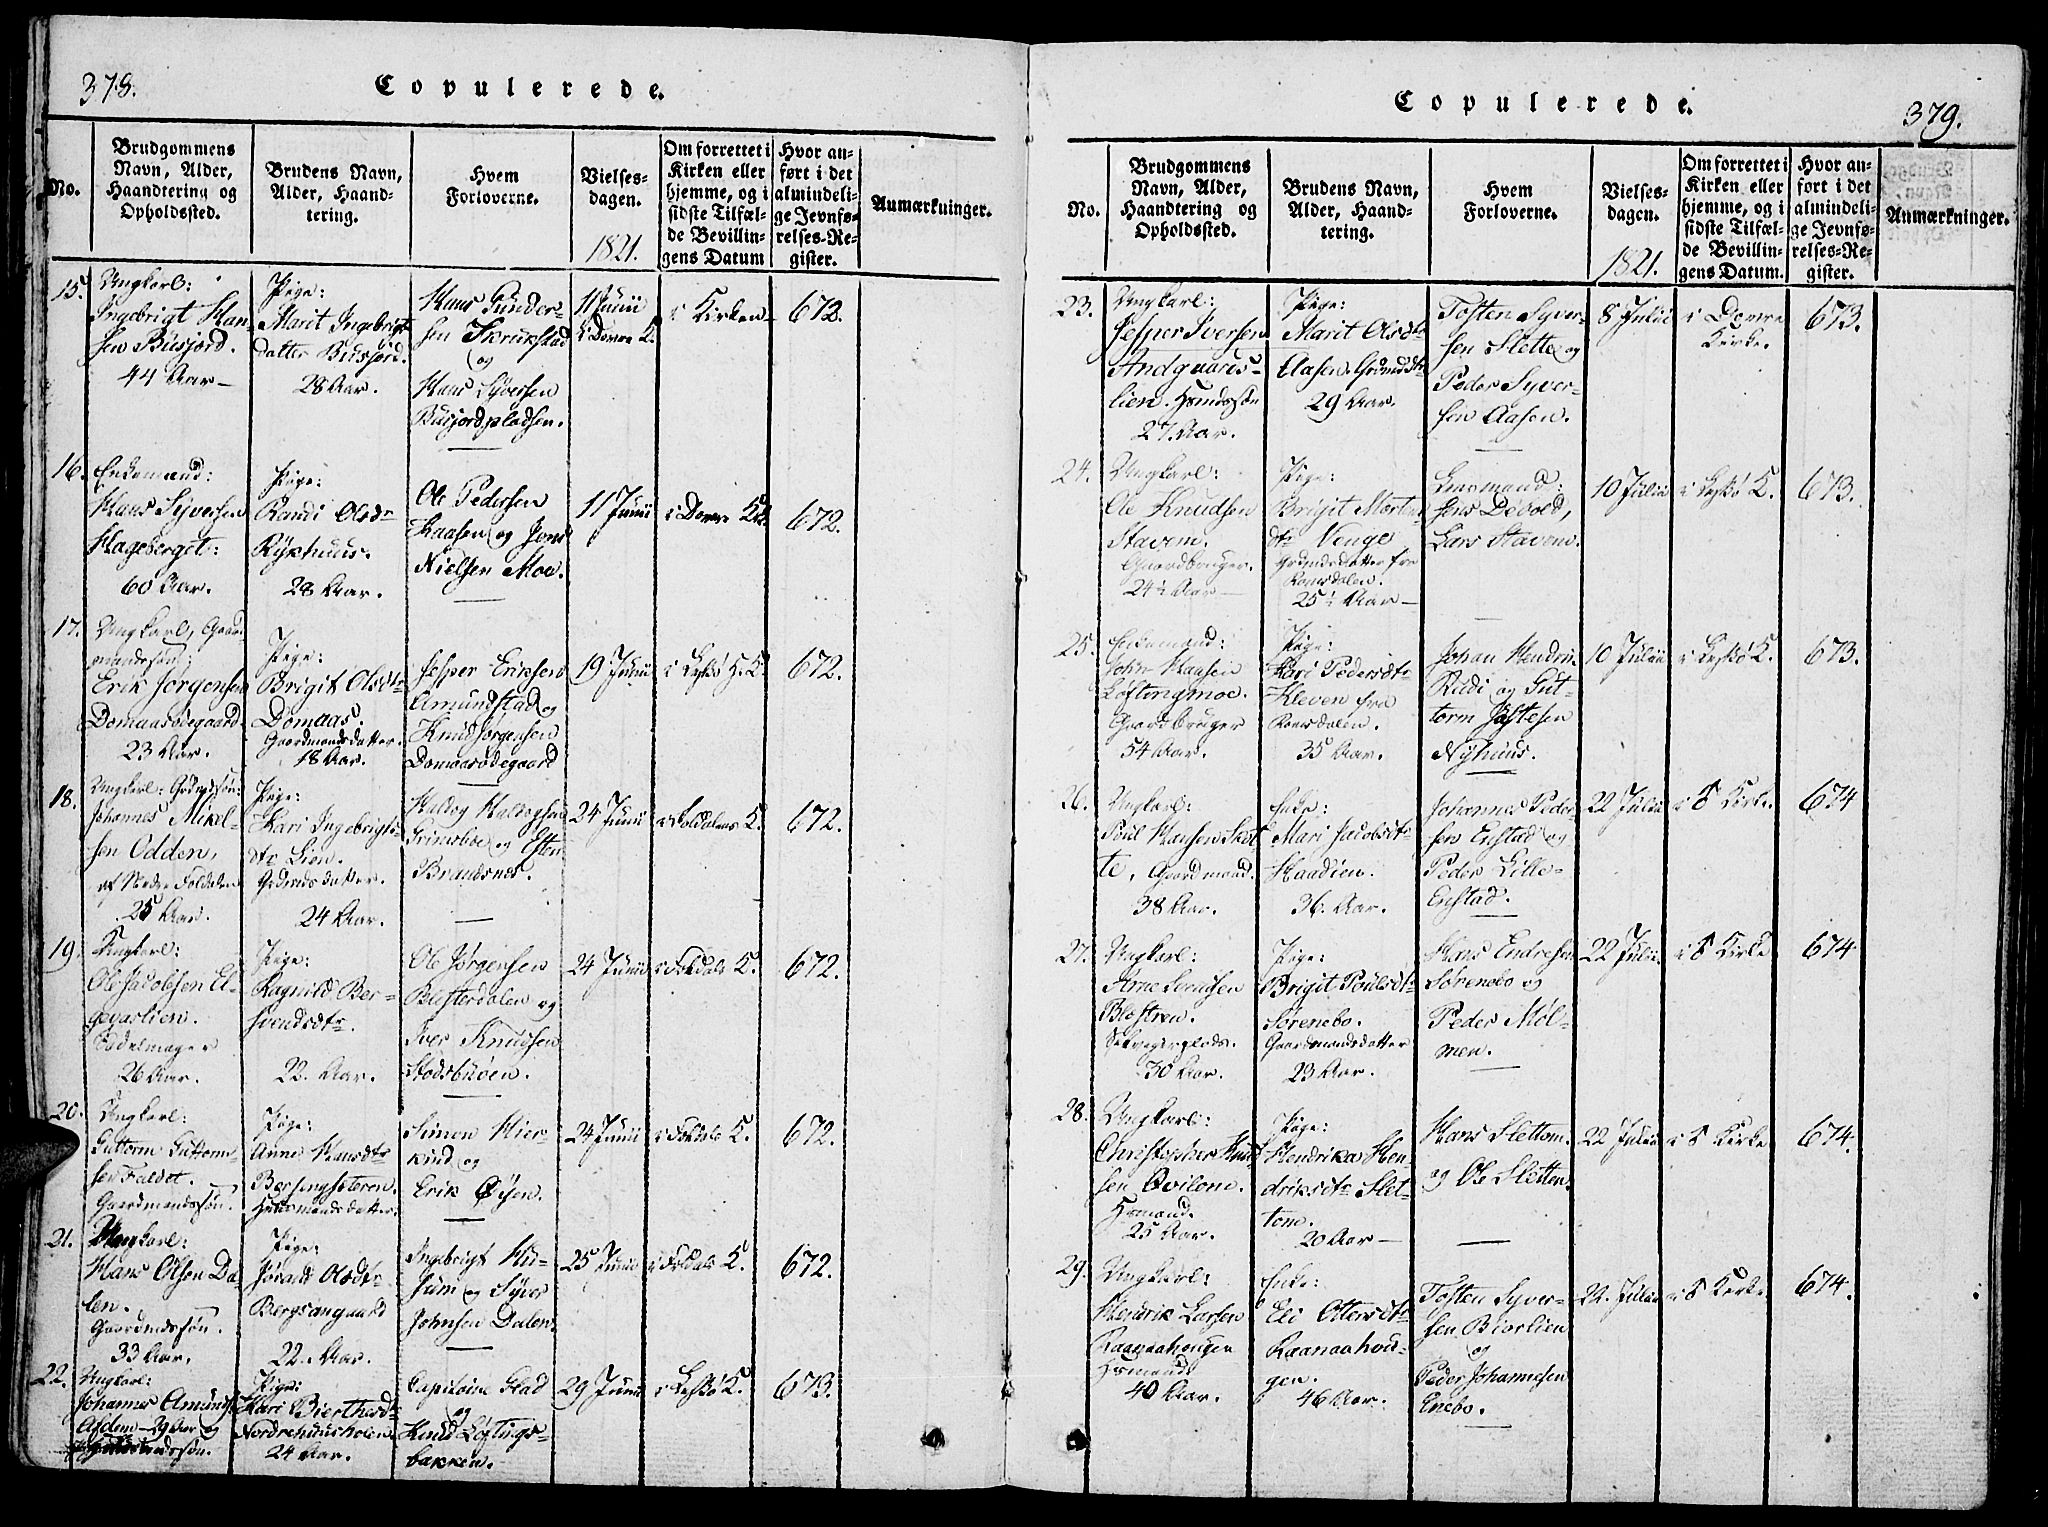 378.
Copulerede.
No.
Brudgommens
Navn, Alder,
Haandtering og
Opholdssted.
Brudens Navn,
Alder, Haand-
tering.
Hvem
Forloverne.
Vielses-
dagen.
1821.
Om forrettet i
Kirken eller
hjemme, og i
sidste Tilfæl-
de Bevillin-
gens Datum
Hvor an-
ført i det
almindeli-
ge Jevnfø-
relses-Re-
gister.
Anmærkninger.
15.
Ungkarl:
Ingebrigt Han-
sen Busjord.
44 Aar
Pige:
Marit Ingebrigt
datter Busjord.
28 Aar.
Hans Gunder-
sen Skrukstad
og
Hans Syversen
Busjordpladsen.
11 Junii
i Kirken
672.
16.
Enkemand:
Hans Syversen
Hageberget:
60 Aar.
Pige:
Randi Olsdr
Rykhuus.
28 Aar.
Ole Pedersen
Kaasen og Jens
Nielsen Moe.
11 Junii
i Domre K.
672.
17.
Ungkarl, Gaard
mandssøn:
Erik Jørgensen
Domaasødegaard.
23 Aar.
Pige:
Brigit Olsdtr
Domaas.
Gaardmandsdatter.
18 Aar.
Jesper Eriksen
Amundstad og
Knud Jørgensen
Domaasødegaard
19 Junii
i Leskø H. K.
672.
18.
Ungkarl: Grdmdssøn:
Johannes Mikel-
sen Odden,
af Nedre Foldalen
25 Aar.
Pige:
Kari Ingebrigts-
dtr Lien.
Grdmdsdatter.
24 Aar.
Haldog Haldogsen
Grimsboe og Esten
Brandsnes.
24 Junii
i Foldalens K.
672.
19.
Ungkarl:
Ole Jacobsen El-
gevaslien.
Sadelmager
26 Aar.
Pige:
Ragnild Ber-
svendsdtr.
22. Aar.
Ole Jørgensen
Blesterdalen og
Iver Knudsen
Stodsbuøen.
24 Junii
i Foldals K.
672.
20.
Ungkarl:
Guttorm Guttorm-
sen Faldet.
Gaardmandssøn.
Pige:
Anne Hansdtr
Husmandsdatter.
Simon Hier-
kind og
Erik Øisen.
24 Junii
i Foldals K.
672.
21.
Ungkarl:
Hans Olsen Da-
len.
Gaardmdssøn.
33 Aar.
Pige:
Jørand Olsdtr
Bergsangaard
22. Aar.
Ingebrigt Hu-
sum og Syver
Johnsen Dalen.
25 Junii
i Foldals K.
672.
22.
Ungkarl:
Johannes Amunds
29 Aar og
Pige:
Kari Bierthesdtr
Nordrehuusholen
24 Aar.
Capitaine Glad
og
Knud Løftings-
bakken.
29 Junii
i Leskø K.
673.
Copulerede.
379.
No.
Brudgommens
Navn, Alder,
Haandtering og
Opholdssted.
Brudens Navn,
Alder, Haand-
tering.
Hvem
Forloverne.
Vielses-
dagen.
1821.
Om forrettet i
Kirken eller
hjemme, og i
sidste Tilfæl-
de Bevillin-
gens Datum.
Hvor an-
ført i det
almindeli-
ge Jevnfø-
relses-Re-
gister.
Anmærkninger.
23.
Ungkarl:
Jesper Iversen
Andgaards-
lien. Hsmdssøn
27. Aar.
Pige:
Marit Olsdtr
Aasen. Grdmdsdtr
29 Aar.
Tosten Syver-
sen Slette og
Peder Syver-
sen Aasen.
8 Julii
i Domre
Kirke.
673.
24.
Ungkarl:
Ole Knudsen
Stavem.
Gaardbruger.
24½ Aar
Pige:
Brigit Morten
dtr Venge
Grdmdsdatter fra
Romsdalen.
25½ Aar
Lensmand:
Jens Devold,
Lars Stavem.
10 Julii
i Leskø K.
673.
25.
Enkemand:
John Hansen
Løftingmoe.
Gaardbruger
54 Aar.
Pige:
Kari Pedersdtr
Kleven fra
Romsdalen.
35 Aar.
Johan Hendrik
Rudi og Gut-
torm Jostesen
Nyhuus.
10 Julii
i Leskø K.
673.
26.
Ungkarl:
Poul Hansen Skot-
te, Gaardmand.
38 Aar.
Enke:
Mari Jacobsdtr
Haadien.
36. Aar.
Johannes Peder-
sen Enstad og
Peder Lille-
Enstad.
22 Julii
i S Kirke
674
27.
Ungkarl:
Arne
30 Aar.
Pige:
Brigit Poulsdtr
Sørenebo.
Gaardmandsdatter
23 Aar.
Hans Endresen
Sørenebo og
Peder Mol-
men.
22 Julii
i S Kirke
674
28.
Ungkarl:
Christopher Knud
sen Qvilom.
Hsmand.
25 Aar.
Pige:
Hendrika Hen-
driksdtr Slet-
tom.
20 Aar
Hans Slettom.
og Ole Sletten.
22 Julii
i S Kirke
674.
29.
Ungkarl:
Hendrik Larsen
Raanaahougen
Hsmand
40 Aar.
Enke:
Eli Ottersdtr
Raanaahou-
gen.
46 Aar.
Tosten Syver-
sen Biorlien
og
Peder Johannesen
Enebo.
22. Julii
i S Kirke
674.